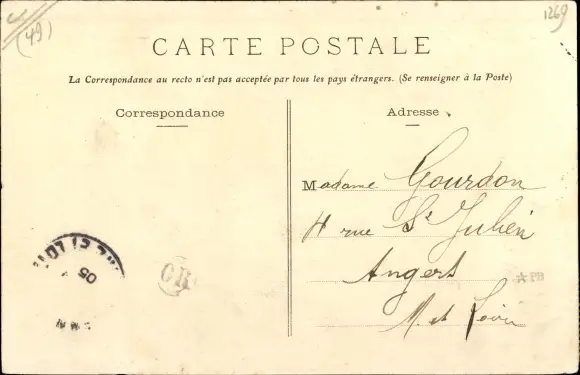 (49)
1269
CARTE POSTALE
La Correspondance au recto n'est pas acceptée par tous les pays étrangers. (Se renseigner à la Poste)
Correspondance
Adresse
Madame Gourdon
4 rue St Julien
Angers
M. et Loire
05
OR